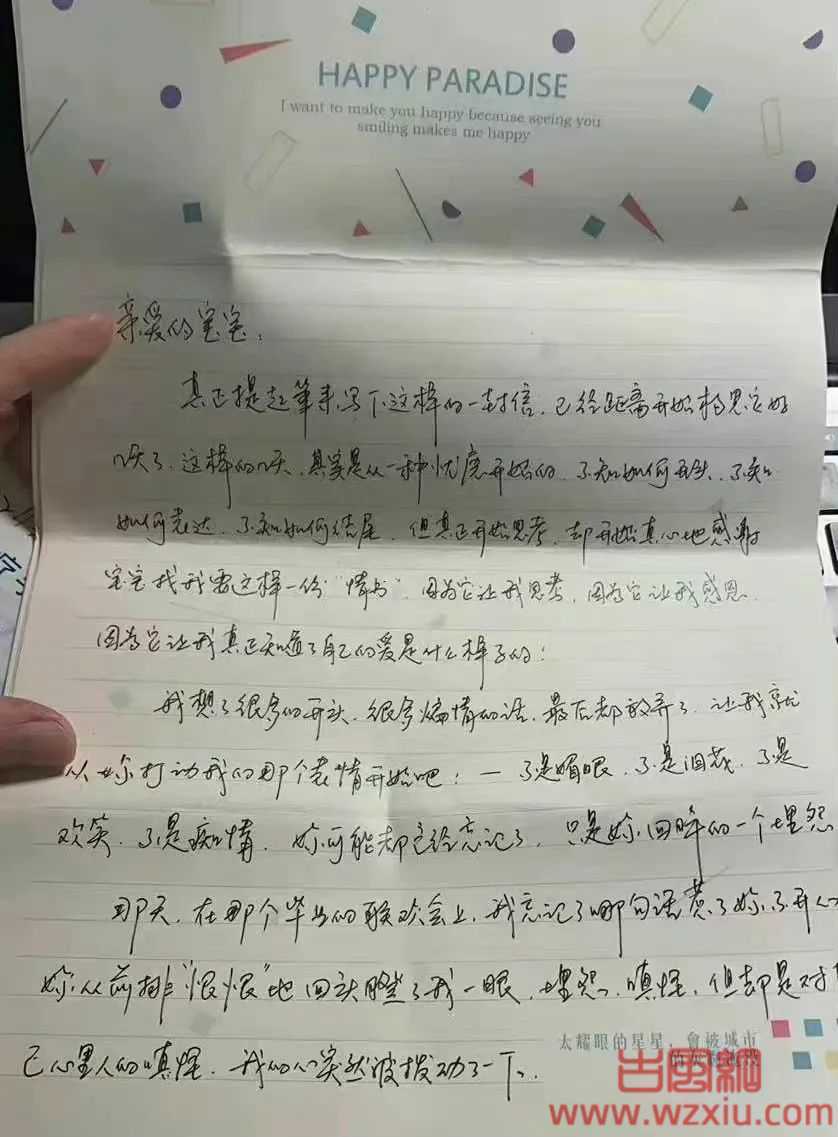 HAPPY PARADISE
I want to make you happy because seeing you
smiling makes me happy
亲爱的宝宝：
真正提起笔来写下这样的一封信，已经距离开始构思它好
几天了，这样的几天，其实是从一种忧虑开始的，不知如何开头，不知
如何表达，不知如何结尾，但真正开始思考，却开始真心地感谢
宝宝找我要这样一份“情书”，因为它让我思考，因为它让我感恩，
因为它让我真正知道了自己的爱是什么样子的：
我想了很多的开头，很多煽情的话，最后却放弃了，让我就
从妳打动我的那个表情开始吧：— 不是媚眼，不是泪花，不是
欢笑，不是痴情，妳可能却已经忘记了，只是妳回眸的一个埋怨
那天，在那个毕业的联欢会上，我忘记了哪句话惹了妳不开心
妳从前排“恨恨”地回头瞪了我一眼，埋怨，嗔怪，但却是对自
己心里人的嗔怪，我的心突然被拨动了一下。
太耀眼的星星，會被城市
出国秀
www.wzxiu.com